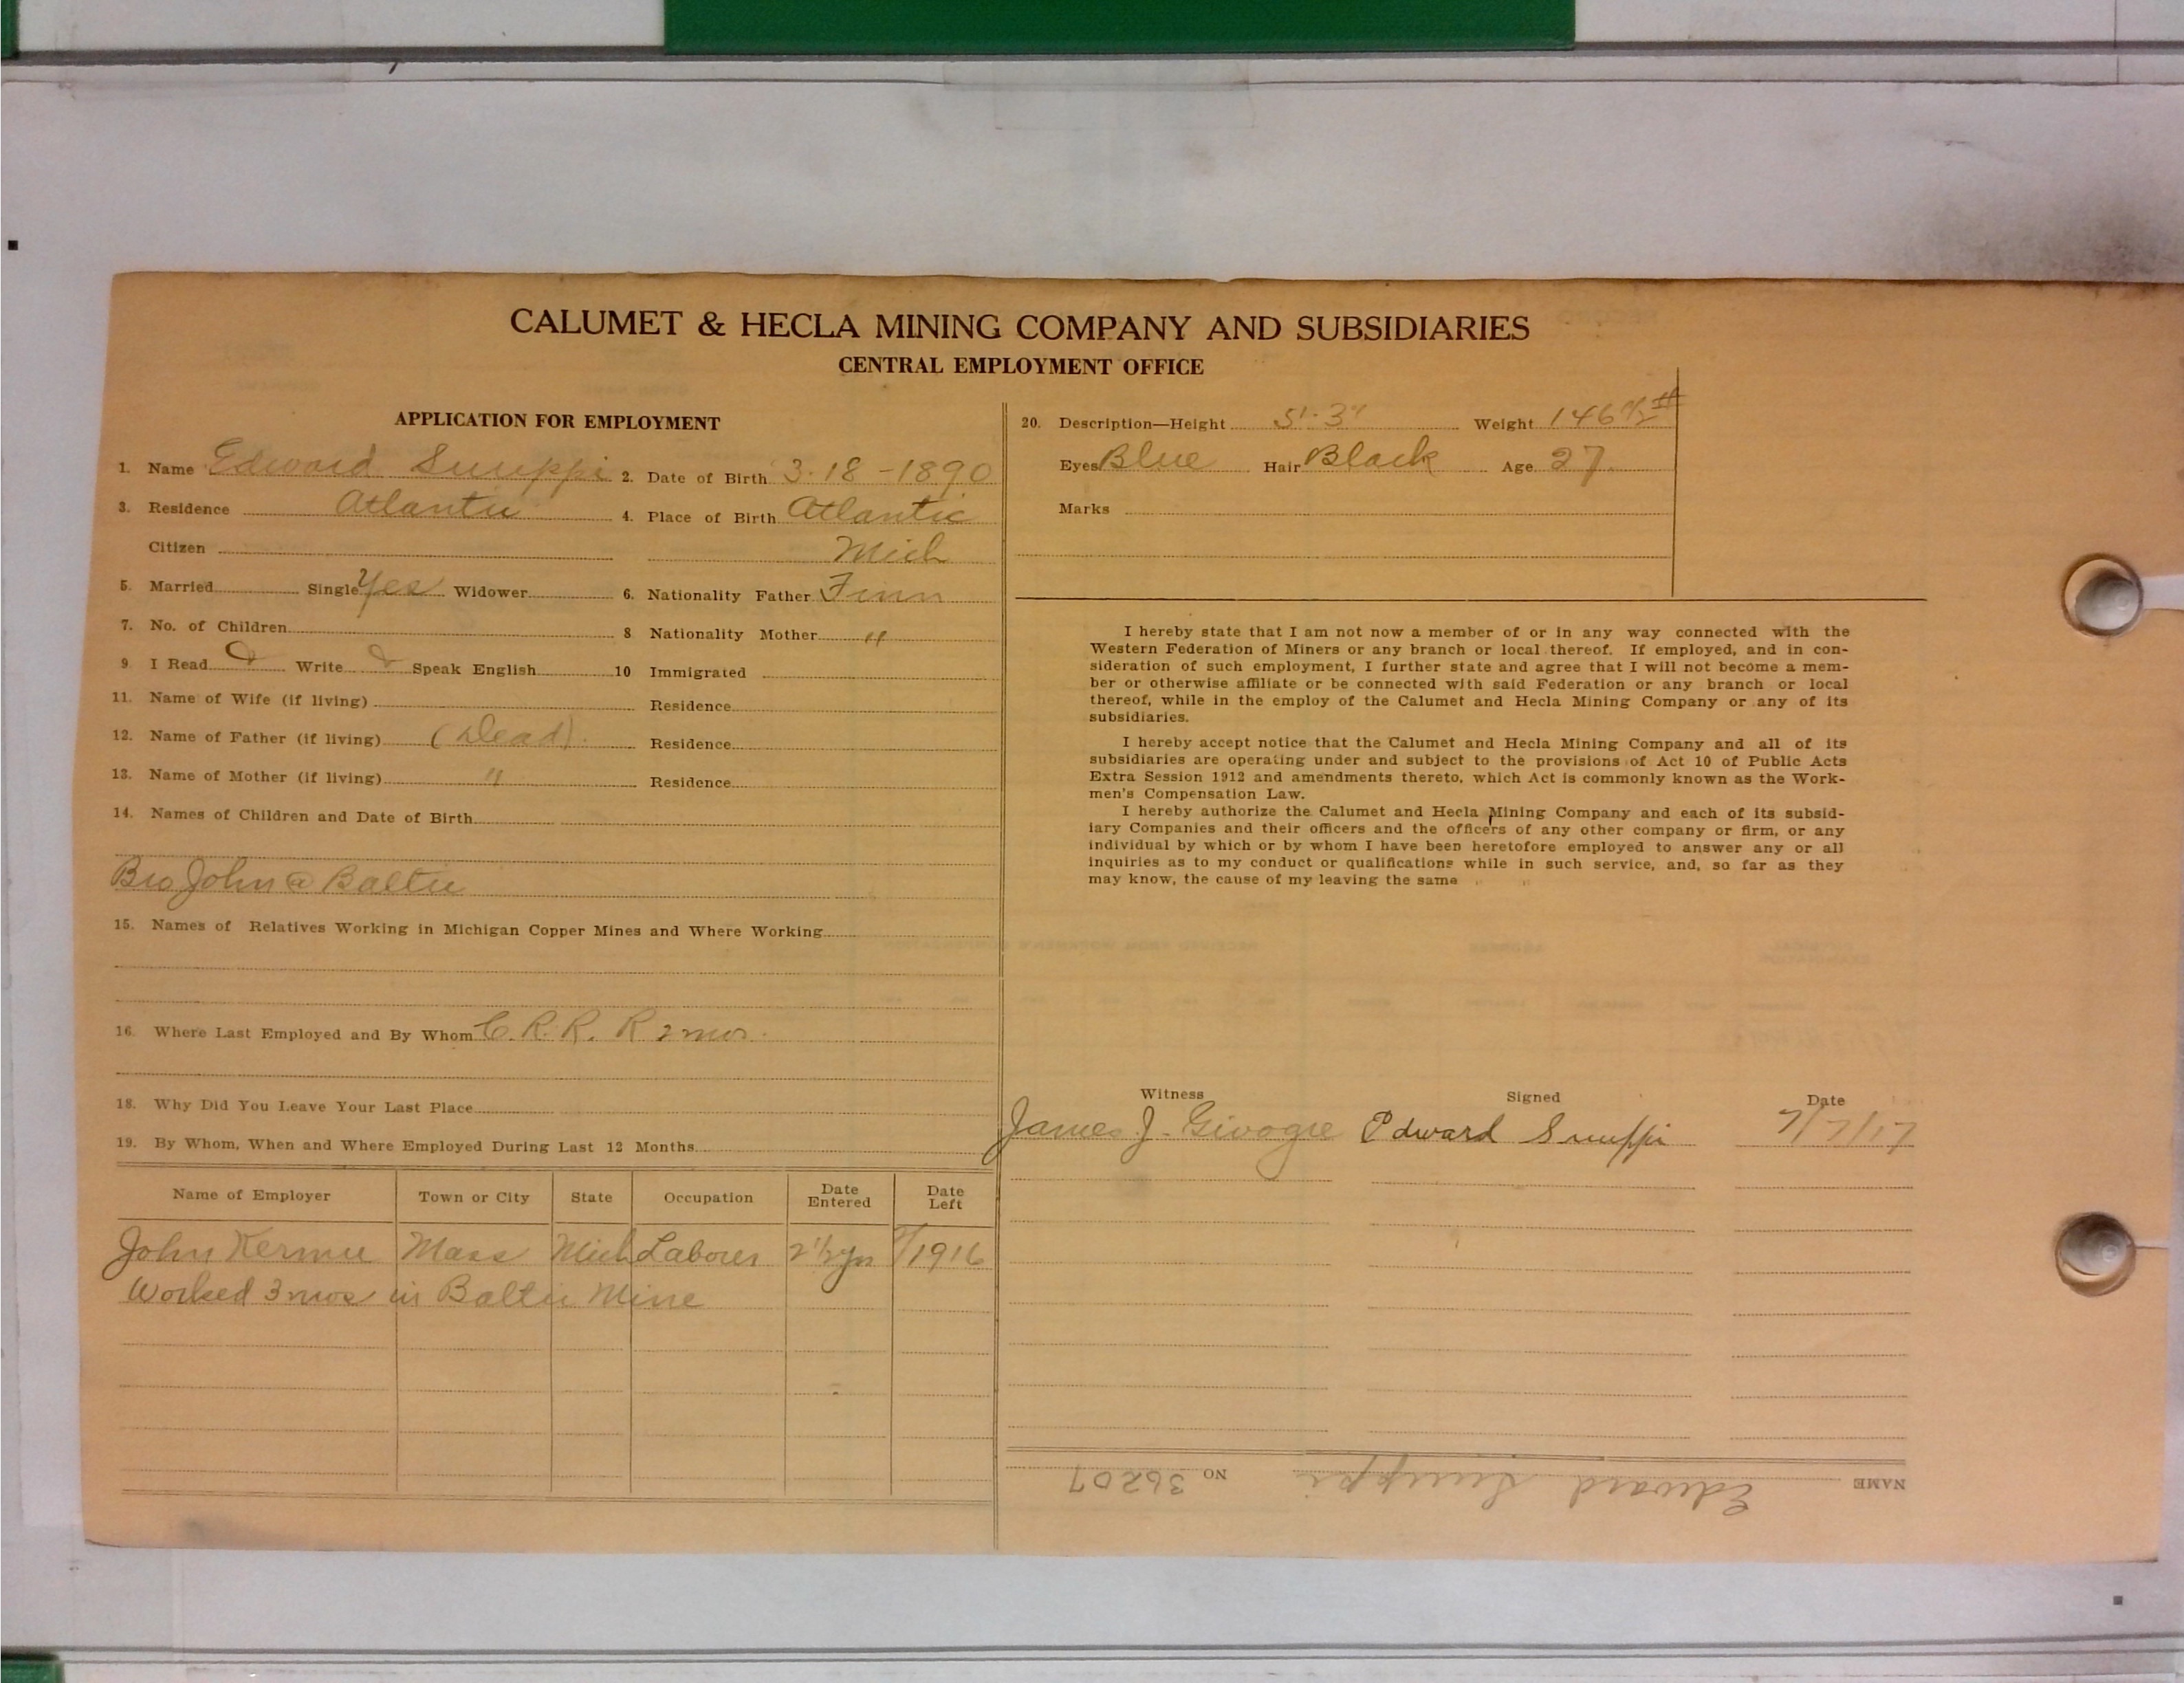 CALUMET & HECLA MINING COMPANY AND SUBSIDIARIES
CENTRAL EMPLOYMENT OFFICE
APPLICATION FOR EMPLOYMENT
1. Name Edward 2. Date of Birth 3-18-1890
3. Residence Atlantic 4. Place of Birth Atlantic
Citizen Mich
5. Married Single Yes Widower 6. Nationality Father Finn
7. No. of Children 8 Nationality Mother "
9 I Read Write Speak English 10 Immigrated
11. Name of Wife (if living) Residence
12. Name of Father (if living) (Dead) Residence
13. Name of Mother (if living) " Residence
14. Names of Children and Date of Birth
Bro John @ Baltic
15. Names of Relatives Working in Michigan Copper Mines and Where Working
16. Where Last Employed and By Whom C. R. R. R 2 mos.
18. Why Did You Leave Your Last Place
19. By Whom, When and Where Employed During Last 12 Months
Name of Employer Town or City State Occupation Date Entered Date Left
John Mass Mich Laborer 2 1/2 yrs /1916
Worked 3 mos in Baltic Mine
20. Description—Height 5'-3" Weight 146 1/2 #
Eyes Blue Hair Black Age 27
Marks
I hereby state that I am not now a member of or in any way connected with the
Western Federation of Miners or any branch or local thereof. If employed, and in con-
sideration of such employment, I further state and agree that I will not become a mem-
ber or otherwise affiliate or be connected with said Federation or any branch or local
thereof, while in the employ of the Calumet and Hecla Mining Company or any of its
subsidiaries.
I hereby accept notice that the Calumet and Hecla Mining Company and all of its
subsidiaries are operating under and subject to the provisions of Act 10 of Public Acts
Extra Session 1912 and amendments thereto, which Act is commonly known as the Work-
men's Compensation Law.
I hereby authorize the Calumet and Hecla Mining Company and each of its subsid-
iary Companies and their officers and the officers of any other company or firm, or any
individual by which or by whom I have been heretofore employed to answer any or all
inquiries as to my conduct or qualifications while in such service, and, so far as they
may know, the cause of my leaving the same
Witness Signed Date
James J. Edward 7/7/17
NAME Edward NO 36207